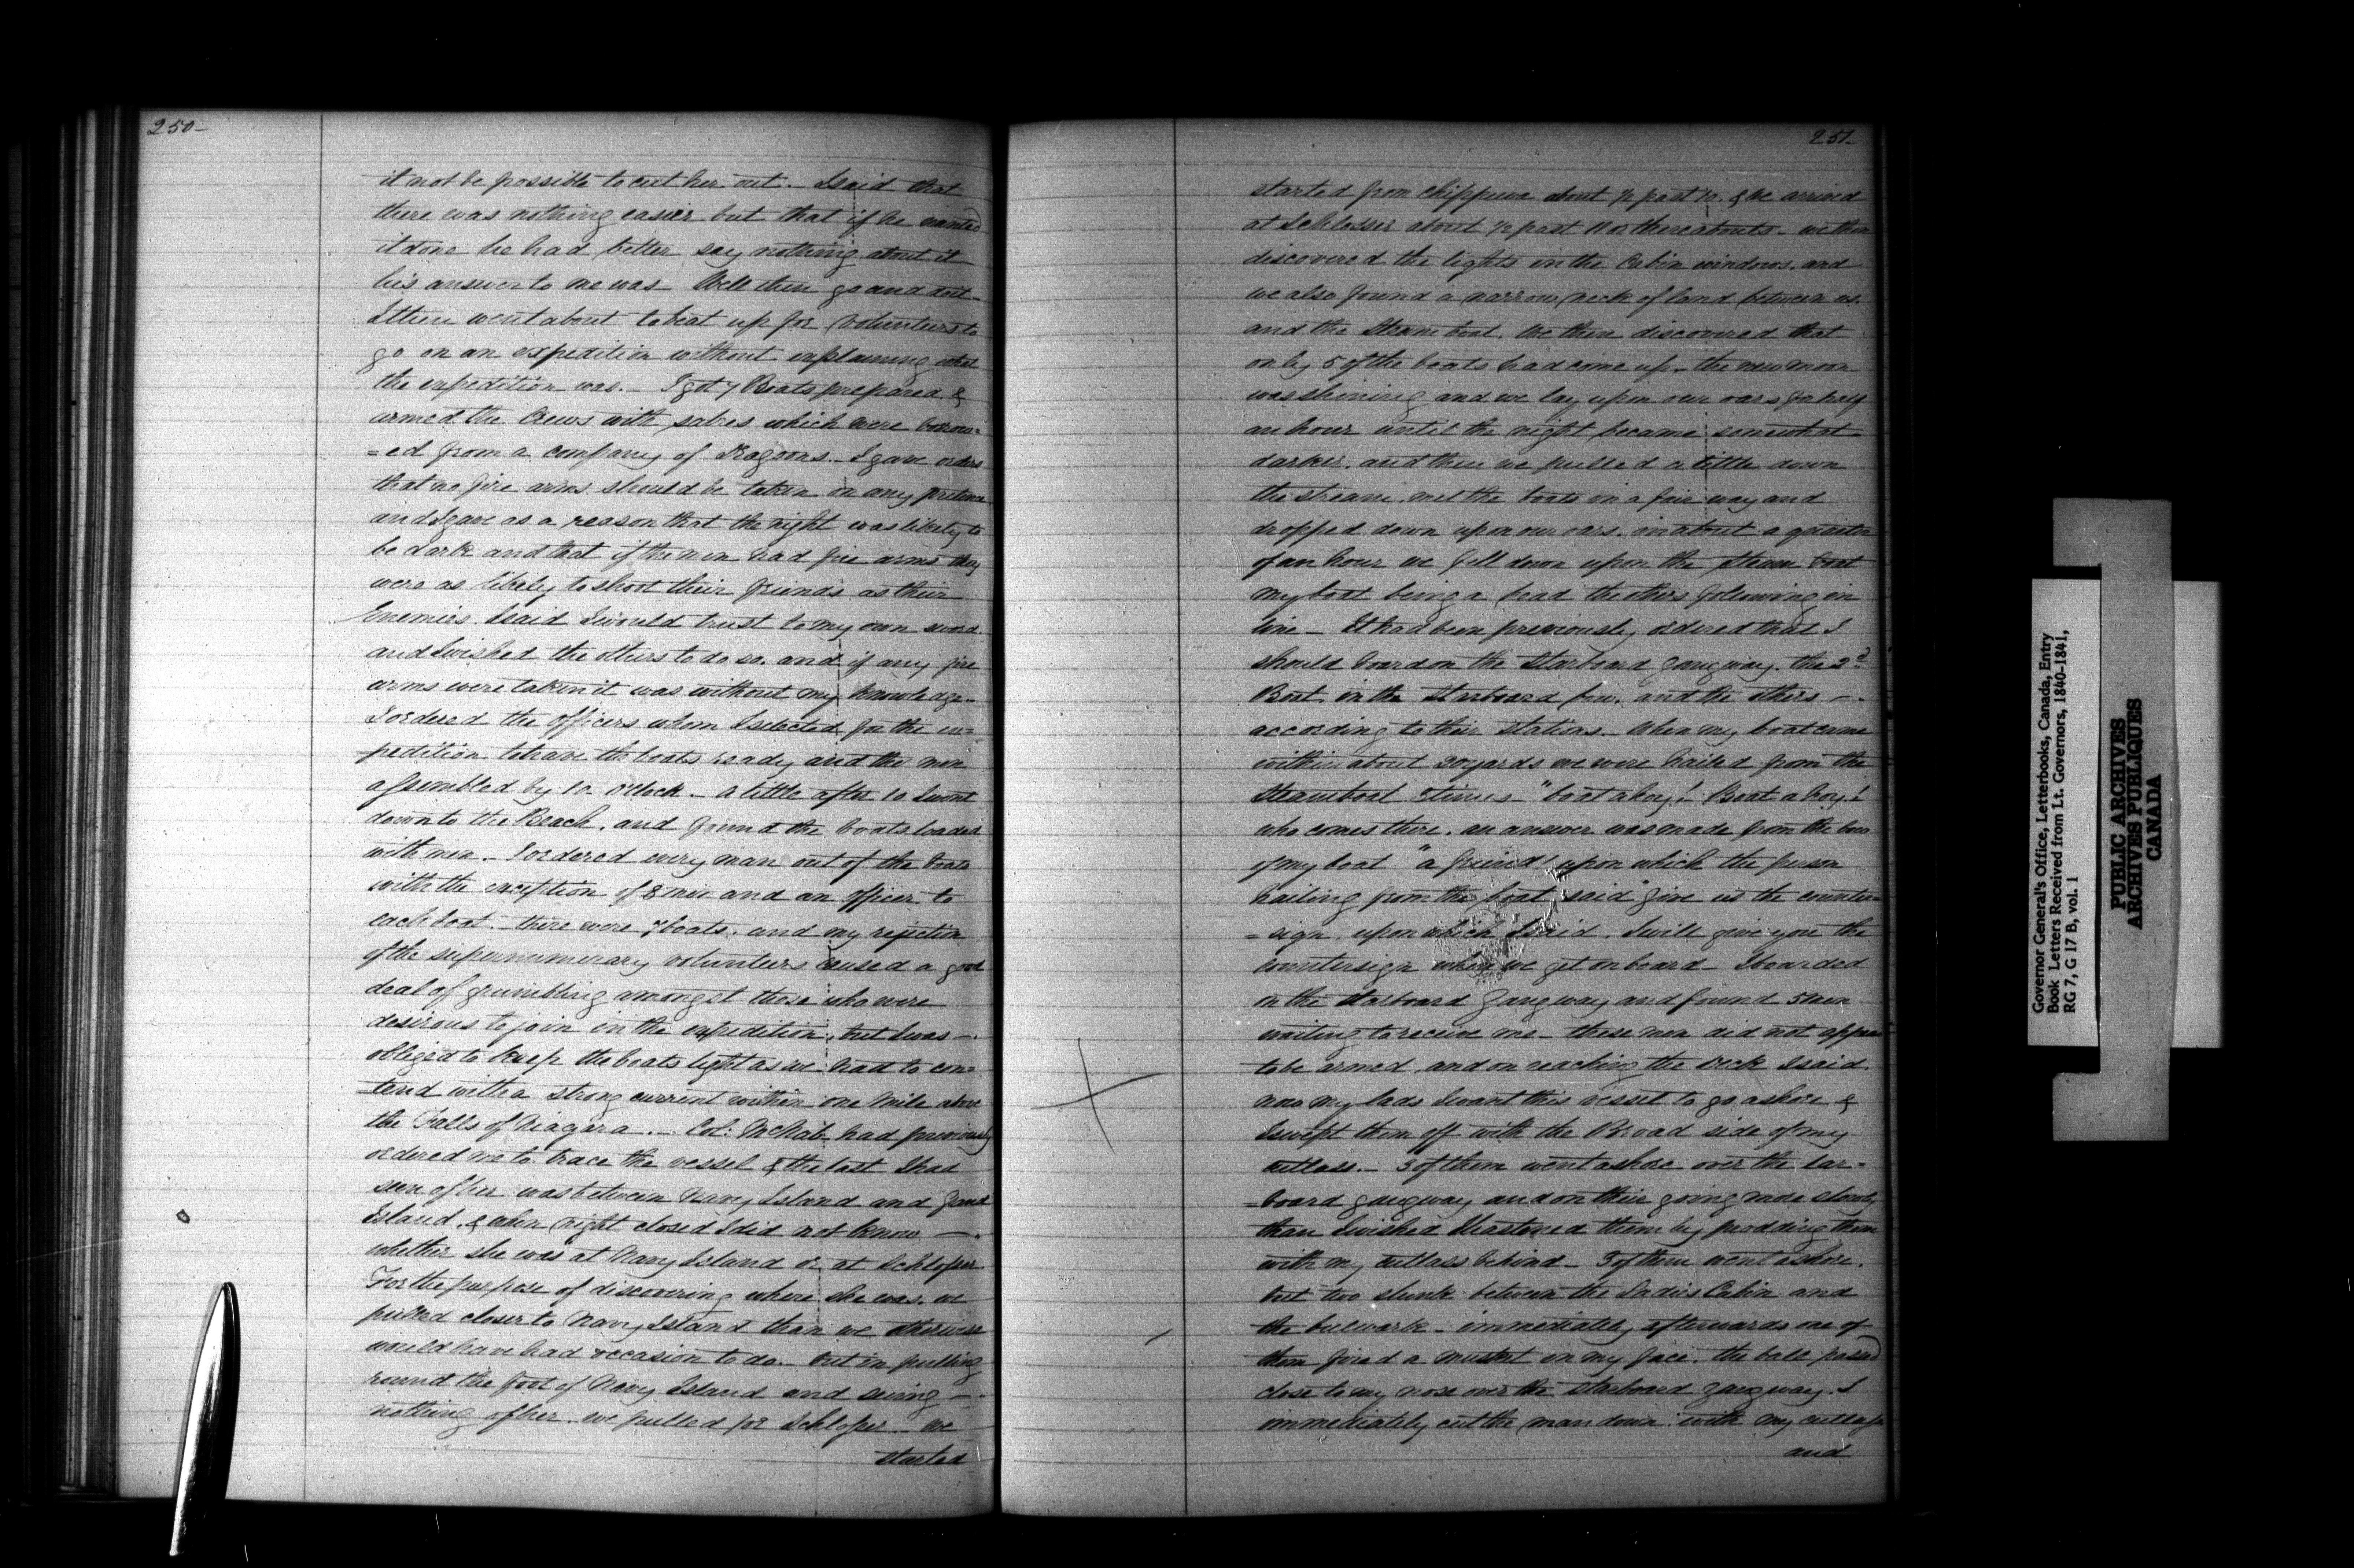 250-
it not be possible to cut her out. I said that
there was nothing easier but that if he wanted
it done he had better say nothing about it
his answer to me was Well then go and do it -
I then went about to beat up for Volunteers to
go on an expedition without explaining what
the expedition was. - I got 7 Boats prepared &
armed the Crews with sabres which were borrow=
=ed from a company of Dragoons. - I gave orders
that no fire arms should be taken on any pretence
and I gave as a reason that the night was likely to
be dark and that if the men had fire arms they
were as likely to shoot their friends as their
Enemies. I said I would trust to my own sword.
and I wished the others to do so. and if any fire
arms were taken it was without my knowledge. -
I ordered the officers whom I selected for the ex=
=pedition to have the boats ready and the men
assembled by 10 o'Clock - a little after 10 I went
down to the Beach, and found the boats loaded
with men. - I ordered every man out of the boats
with the exception of 8 men and an officer to
each boat. - there were 7 boats. and my rejection
of the supernumerary volunteers caused a good
deal of grumbling amongst those who were
desirous to join in the expedition, but I was -
obliged to keep the boats light as we had to con=
=tend with a strong current within one Mile above
the Falls of Niagara. - Col: McNab had previously
ordered me to trace the vessel & the last I had
seen of her was between Navy Island and Grand
Island, & when night closed I did not know -
whether she was at Navy Island or at Schlosser
For the purpose of discovering where she was, we
pulled closer to Navy Island than we otherwise
would have had occasion to do. - but in pulling
round the foot of Navy Island and seeing -
nothing of her - we pulled for Schlosser - We
started
251-
started from Chippewa about 1/2 past 10. & we arrived
at Schlosser about 1/2 past 11 or thereabouts - we then
discovered the lights in the Cabin windows, and
we also found a narrow neck of land between us
and the Steam boat. We then discovered that
only 5 of the boats had come up - the new moon
was shining and we lay upon our oars for half
an hour until the night became somewhat
darker, and then we pulled a little down
the stream, met the boats in a fair way and
dropped down upon our oars. in about a quarter
of an hour we fell down upon the Steam boat
my boat being a head the others following in
line - It had been previously ordered that I
should board on the Starboard gangway. the 2d
Boat in the Starboard bow. and the others -
according to their Stations. - When my boat came
within about 20 yards we were hailed from the
Steamboat times - "boat ahoy! Boat ahoy!
who comes there. an answer was made from the bow
of my boat "a friend" upon which the person
hailing from the boat said "give us the counter=
=sign, upon which I said. I will give you the
countersign when we get on board - I boarded
on the Starboard Gangway and found 5 men
waiting to receive me - these men did not appear
to be armed, and on reaching the deck I said.
now my lads I want this vessel to go ashore &
I swept them off with the Broad side of my
cutlass. - 3 of them went ashore over the lar=
=board gangway and on their going more slowly
than I wished I hastened them by prodding them
with my cutlass behind - 3 of them went ashore.
but two slunk between the Ladies Cabin and
the bulwark - immediately afterwards one of
them fired a musket in my face. the ball passed
close to my nose over the starboard gangway. I
immediately cut the man down with my cutlass
and
Governor General's Office, Letterbooks, Canada, Entry
Book Letters Received from Lt. Governors, 1840-1841,
RG 7, G 17 B, vol. 1
PUBLIC ARCHIVES
ARCHIVES PUBLIQUES
CANADA